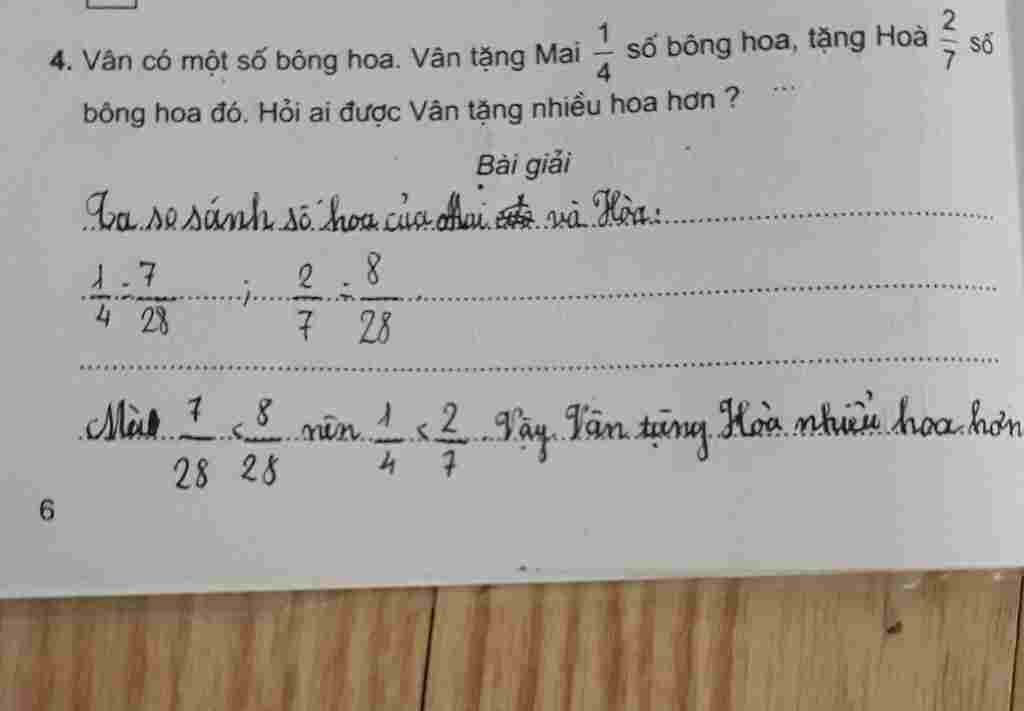 4. Vân có một số bông hoa. Vân tặng Mai 1/4 số bông hoa, tặng Hoà 2/7 số
bông hoa đó. Hỏi ai được Vân tặng nhiều hoa hơn ? ...
Bài giải
Ta so sánh số hoa của Mai và Hòa:
1/4 = 7/28 ; 2/7 = 8/28
Mà 7/28 < 8/28 nên 1/4 < 2/7. Vậy Vân tặng Hòa nhiều hoa hơn
6